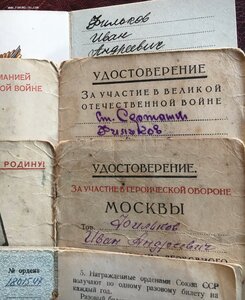 Фильков
Иван
Андреевич
МАНИЕЙ
ОЙ ВОЙНЕ
УДОСТОВЕРЕНИЕ
ЗА УЧАСТИЕ В ВЕЛИКОЙ
ОТЕЧЕСТВЕННОЙ ВОЙНЕ
Ст. Сержант
Фильков
РОДИНУ!
УДОСТОВЕРЕНИЕ.
ЗА УЧАСТИЕ В ГЕРОИЧЕСКОЙ ОБОРОНЕ
МОСКВЫ
Тов. Фильков
Иван Андреевич
№ ордена
5. Награжденные орденами Союза ССР
получают по одному разовому билету на
каждый год.